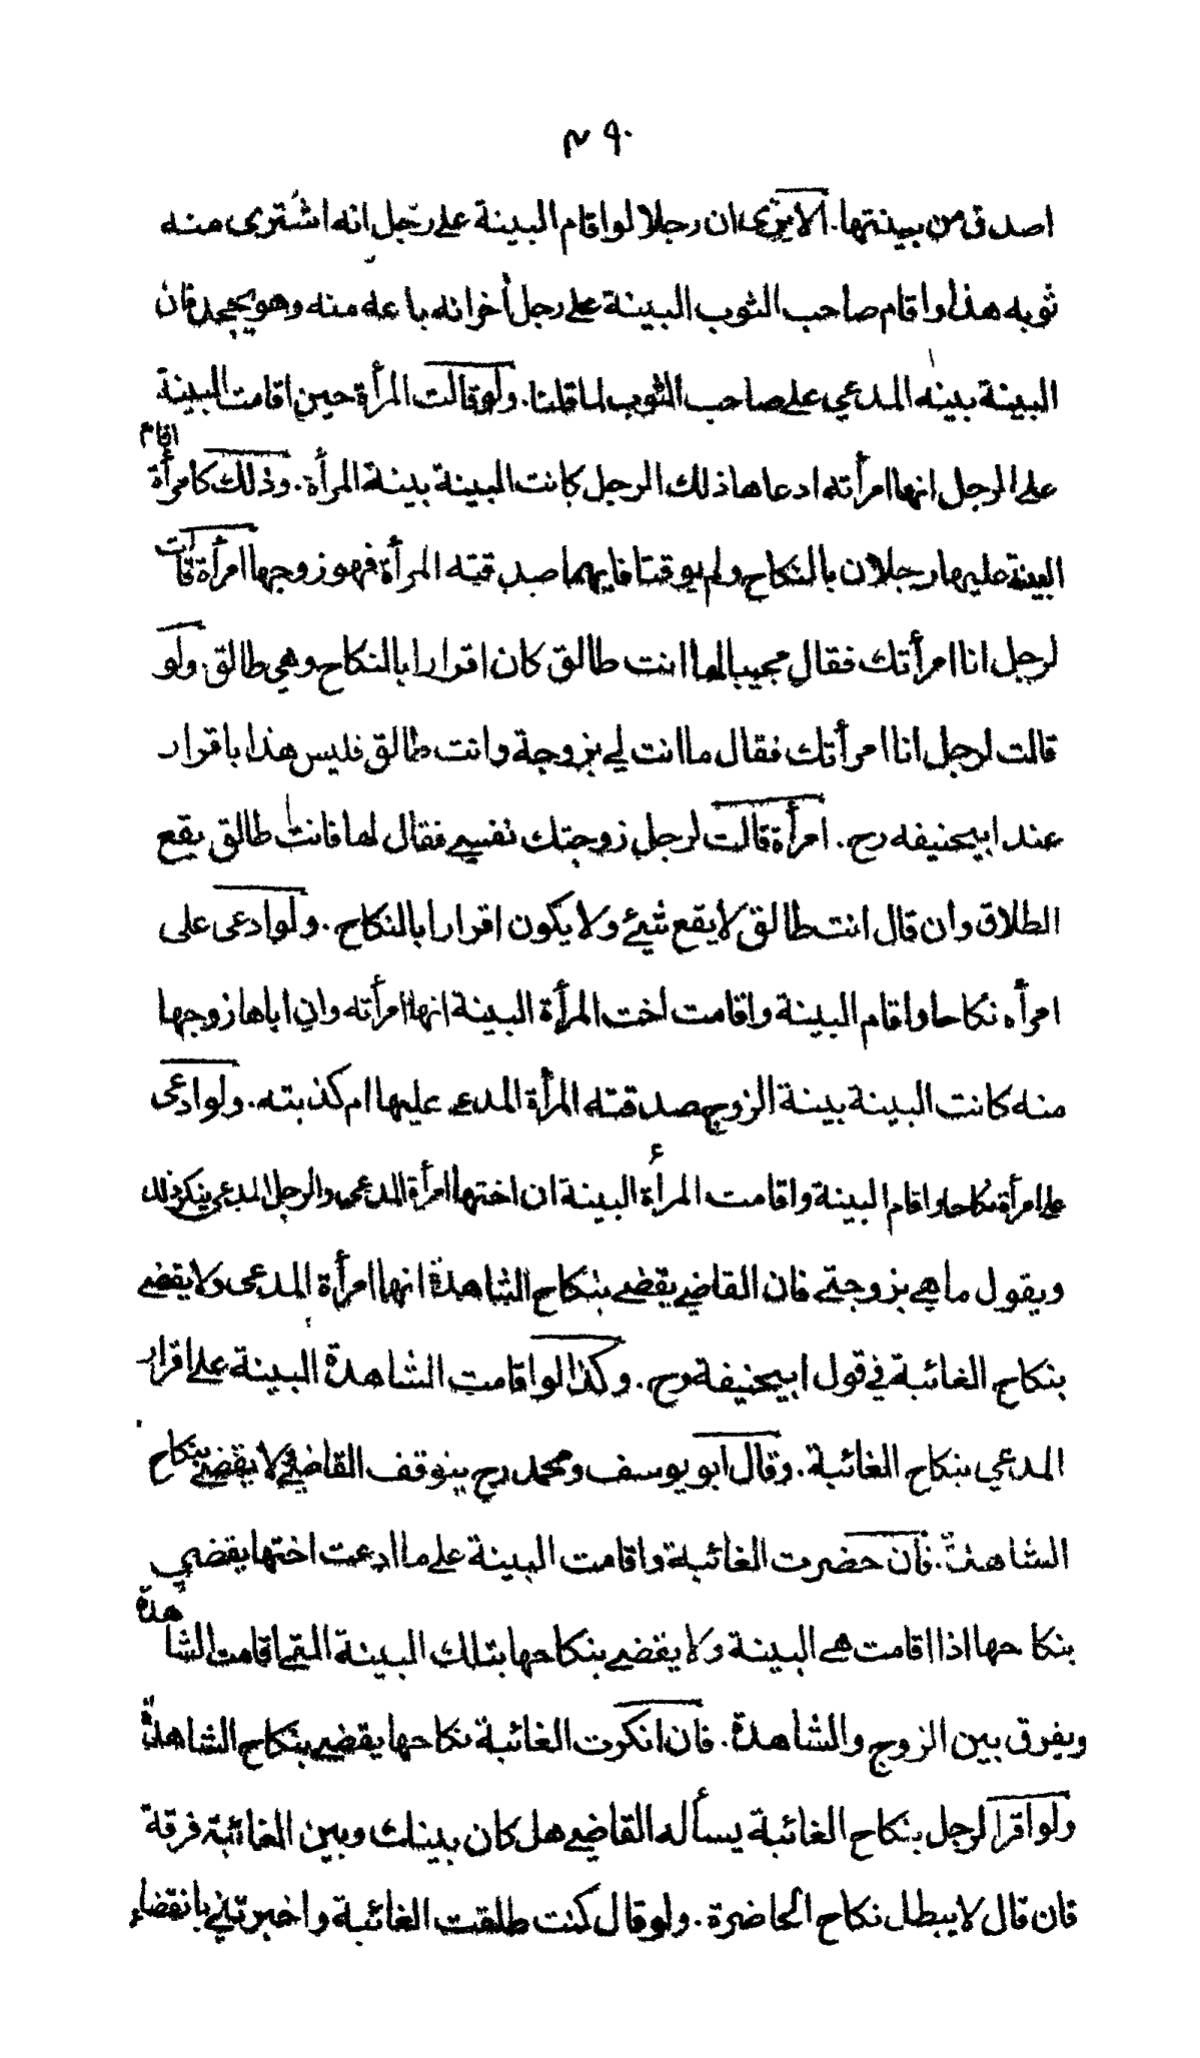 ٢٩٠
اصدق من بينتها. الا يرى ان رجلا لو اقام البينة على رجل انه اشترى منه
ثوبه هذا واقام صاحب الثوب البينة على رجل أخر انه باعه منه وهو يجحد فان
البينة بينه المدعي على صاحب الثوب لما قلنا. ولو قالت المرأة حين اقامت البينة
على الرجل انها امرأته ادعاها ذلك الرجل كانت البينة بينة المرأة. وذلك كامرأة اقام
البينة عليها رجلان بالنكاح ولم يوقتا فايهما صدقته المرأة فهو زوجها امرأة قالت
لرجل انا امرأتك فقال مجيبا لها انت طالق كان اقرارا بالنكاح وهي طالق ولو
قالت لرجل انا امرأتك فقال ما انت لي بزوجة وانت طالق فليس هذا باقرار
عند ابيحنيفه رح. امرأة قالت لرجل زوجتك نفسي فقال لها فانت طالق يقع
الطلاق وان قال انت طالق لا يقع شيئ ولا يكون اقرارا بالنكاح. ولو ادعى على
امرأه نكاحا واقام البينة واقامت اخت المرأة البينة انها امرأته وان اباها زوجها
منه كانت البينة بينة الزوج صدقته المرأة المدعى عليها ام كذبته. ولو ادعى
على امرأة نكاحا واقام البينة واقامت المرأة البينة ان اختها امرأة المدعي والرجل المدعي ينكر ذلك
ويقول ما هي بزوجتي فان القاضي يقضي بنكاح الشاهدة انها امرأة المدعى ولا يقضي
بنكاح الغائبة في قول ابيحنيفة رح. وكذا لو اقامت الشاهدة البينة على اقرار
المدعي بنكاح الغائبة. وقال ابو يوسف ومحمد رح يتوقف القاضي لا يقضي بنكاح
الشاهدة. فان حضرت الغائبة واقامت البينة على ما ادعت اختها يقضي
بنكاحها اذا اقامت هي البينة ولا يقضي بنكاحها بتلك البينة التي اقامت الشاهدة
ويفرق بين الزوج والشاهدة. فان انكرت الغائبة نكاحها يقضي بنكاح الشاهدة
ولو اقر الرجل بنكاح الغائبة يسأله القاضي هل كان بينك وبين الغائبة فرقة
فان قال لا يبطل نكاح الحاضرة. ولو قال كنت طلقت الغائبة واخبرتني بانقضاء